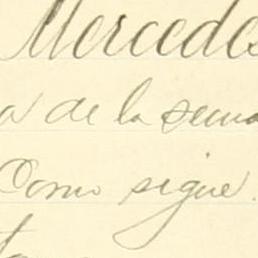 Mercedes
a de la sema
Como sigue.